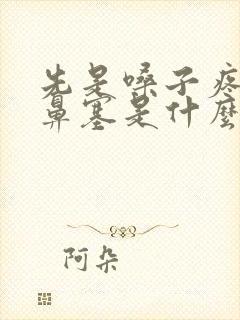 先是嗓子疼
鼻塞是什麼
阿朵